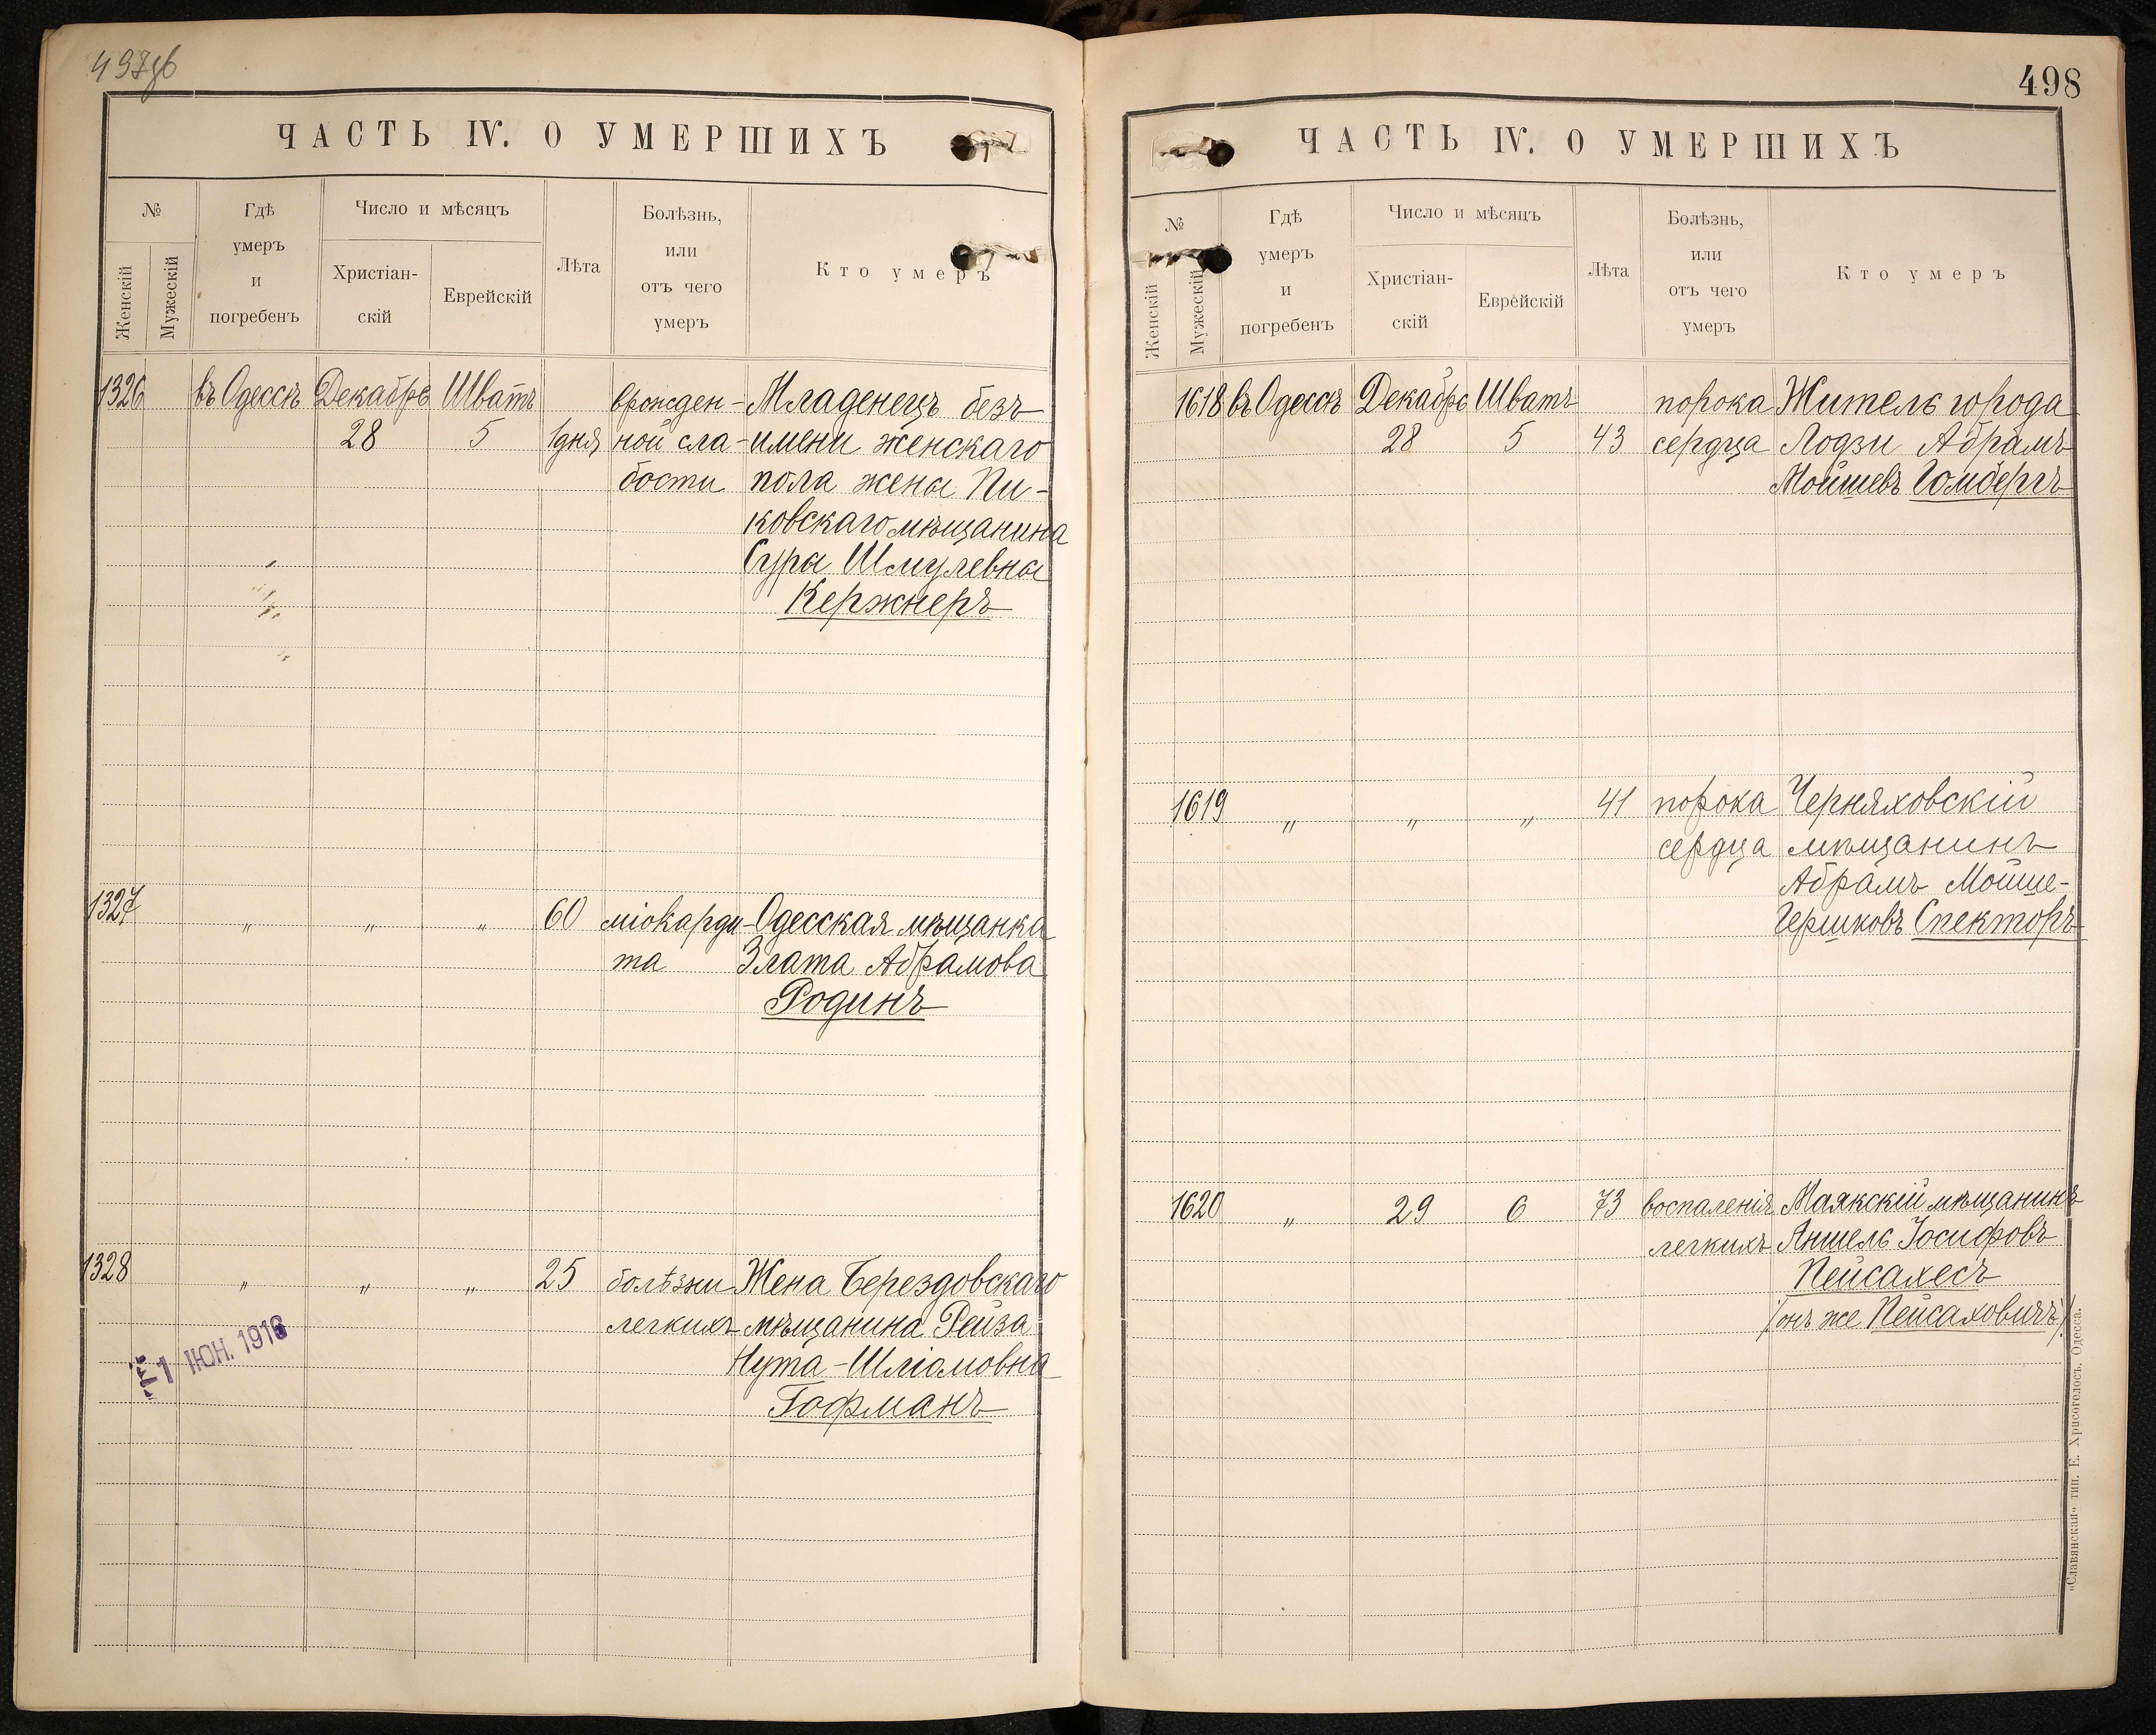 498
ЧАСТЬ IV. О УМЕРШИХЪ
№
Женскій
Мужескій
Гдѣ
умеръ
и
погребенъ
Число и мѣсяцъ
Христіан-
скій
Еврейскій
Лѣта
Болѣзнь,
или
отъ чего
умеръ
Кто умеръ
1326 въ Одессѣ Декабрь Шватъ врожден- Младенецъ безъ
28 5 1 дня ной сла- имени женскаго
бости пола жены Пи-
ковскаго мѣщанина
Суры Шмулевны
Кержнеръ
1327 „ „ „ 60 міокарди- Одесская мѣщанка
та Злата Абрамова
Родинъ
1328 „ „ „ 25 болѣзни Жена Берездовскаго
легкихъ мѣщанина Рейза
Нута-Шліомовна
Гофманъ
1 ІЮН. 1916
ЧАСТЬ IV. О УМЕРШИХЪ
№
Женскій
Мужескій
Гдѣ
умеръ
и
погребенъ
Число и мѣсяцъ
Христіан-
скій
Еврейскій
Лѣта
Болѣзнь,
или
отъ чего
умеръ
Кто умеръ
1618 въ Одессѣ Декабрь Шватъ порока Житель города
28 5 43 сердца Лодзи Абрамъ
Мойшевъ Гомбергъ
1619 „ „ „ 41 порока Черняховскій
сердца мѣщанинъ
Абрамъ Мойше-
Гершковъ Спекторъ
1620 „ 29 6 73 воспаленія Маякскій мѣщанинъ
легкихъ Аншель Іосифовъ
Пейсахесъ
(онъ же Пейсаховичъ)
«Славянская» тип. Е. Хрисогелосъ. Одесса.